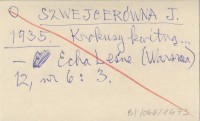 SZWEJCERÓWNA J.
1935. Krokusy kwitną...
— Echa Leśne (Warszawa)
12, nr 6: 3.